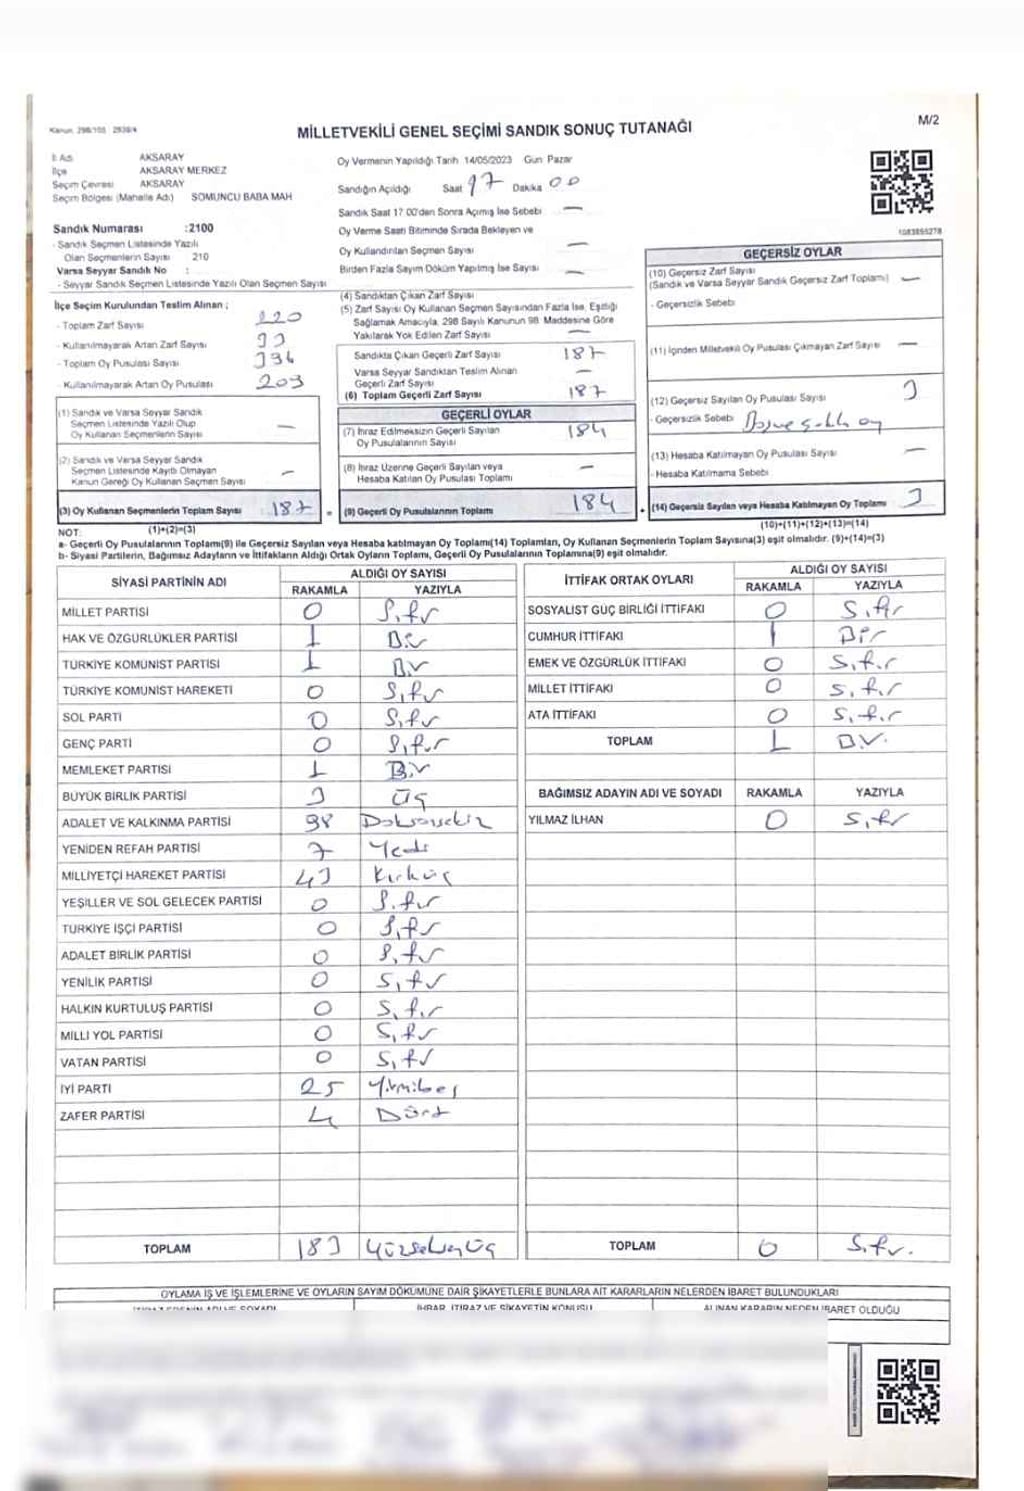 Kanun 298/105 2839/4
MİLLETVEKİLİ GENEL SEÇİMİ SANDIK SONUÇ TUTANAĞI
M/2
İl Adı AKSARAY
İlçe AKSARAY MERKEZ
Seçim Çevresi AKSARAY
Seçim Bölgesi (Mahalle Adı) SOMUNCU BABA MAH
Oy Vermenin Yapıldığı Tarih 14/05/2023 Gün Pazar
Sandığın Açıldığı Saat 17 Dakika 00
Sandık Saat 17 00'den Sonra Açımış İse Sebebi —
Oy Verme Saati Bitiminde Sırada Bekleyen ve
Oy Kullandırılan Seçmen Sayısı —
Birden Fazla Sayım Döküm Yapılmış İse Sayısı —
1083855278
Sandık Numarası :2100
- Sandık Seçmen Listesinde Yazılı
Olan Seçmenlerin Sayısı 210
Varsa Seyyar Sandık No :
- Seyyar Sandık Seçmen Listesinde Yazılı Olan Seçmen Sayısı
İlçe Seçim Kurulundan Teslim Alınan ;
- Toplam Zarf Sayısı 220
- Kullanılmayarak Artan Zarf Sayısı 33
- Toplam Oy Pusulası Sayısı
- Kullanılmayarak Artan Oy Pusulası 203
(1) Sandık ve Varsa Seyyar Sandık
Seçmen Listesinde Yazılı Olup
Oy Kullanan Seçmenlerin Sayısı —
(2) Sandık ve Varsa Seyyar Sandık
Seçmen Listesinde Kayıtlı Olmayan
Kanun Gereği Oy Kullanan Seçmen Sayısı —
(3) Oy Kullanan Seçmenlerin Toplam Sayısı 187
(1)+(2)=(3)
(4) Sandıktan Çıkan Zarf Sayısı
(5) Zarf Sayısı Oy Kullanan Seçmen Sayısından Fazla İse, Eşitliği
Sağlamak Amacıyla, 298 Sayılı Kanunun 98 Maddesine Göre
Yakılarak Yok Edilen Zarf Sayısı —
Sandıkta Çıkan Geçerli Zarf Sayısı 187
Varsa Seyyar Sandıktan Teslim Alınan
Geçerli Zarf Sayısı —
(6) Toplam Geçerli Zarf Sayısı 187
GEÇERLİ OYLAR
(7) İtiraz Edilmeksizin Geçerli Sayılan
Oy Pusulalarının Sayısı 184
(8) İtiraz Üzerine Geçerli Sayılan veya
Hesaba Katılan Oy Pusulası Toplamı —
(9) Geçerli Oy Pusulalarının Toplamı 184
GEÇERSİZ OYLAR
(10) Geçersiz Zarf Sayısı
(Sandık ve Varsa Seyyar Sandık Geçersiz Zarf Toplamı) —
- Geçersizlik Sebebi
(11) İçinden Milletvekili Oy Pusulası Çıkmayan Zarf Sayısı —
(12) Geçersiz Sayılan Oy Pusulası Sayısı 3
- Geçersizlik Sebebi oy
(13) Hesaba Katılmayan Oy Pusulası Sayısı —
- Hesaba Katılmama Sebebi
(14) Geçersiz Sayılan veya Hesaba Katılmayan Oy Toplamı 3
(10)+(11)+(12)+(13)=(14)
NOT:
a- Geçerli Oy Pusulalarının Toplamı(9) ile Geçersiz Sayılan veya Hesaba katılmayan Oy Toplamı(14) Toplamları, Oy Kullanan Seçmenlerin Toplam Sayısına(3) eşit olmalıdır. (9)+(14)=(3)
b- Siyasi Partilerin, Bağımsız Adayların ve İttifakların Aldığı Ortak Oyların Toplamı, Geçerli Oy Pusulalarının Toplamına(9) eşit olmalıdır.
SİYASİ PARTİNİN ADI ALDIĞI OY SAYISI
RAKAMLA YAZIYLA
MİLLET PARTİSİ 0 Sıfır
HAK VE ÖZGÜRLÜKLER PARTİSİ 1 Bir
TÜRKİYE KOMÜNİST PARTİSİ 1 Bir
TÜRKİYE KOMÜNİST HAREKETİ 0 Sıfır
SOL PARTİ 0 Sıfır
GENÇ PARTİ 0 Sıfır
MEMLEKET PARTİSİ 1 Bir
BÜYÜK BİRLİK PARTİSİ 3 Üç
ADALET VE KALKINMA PARTİSİ 98 Doksansekiz
YENİDEN REFAH PARTİSİ 7 Yedi
MİLLİYETÇİ HAREKET PARTİSİ 43 Kırküç
YEŞİLLER VE SOL GELECEK PARTİSİ 0 Sıfır
TÜRKİYE İŞÇİ PARTİSİ 0 Sıfır
ADALET BİRLİK PARTİSİ 0 Sıfır
YENİLİK PARTİSİ 0 Sıfır
HALKIN KURTULUŞ PARTİSİ 0 Sıfır
MİLLİ YOL PARTİSİ 0 Sıfır
VATAN PARTİSİ 0 Sıfır
İYİ PARTİ 25 Yirmibeş
ZAFER PARTİSİ 4 Dört
TOPLAM 183 Yüzseksenüç
İTTİFAK ORTAK OYLARI ALDIĞI OY SAYISI
RAKAMLA YAZIYLA
SOSYALİST GÜÇ BİRLİĞİ İTTİFAKI 0 Sıfır
CUMHUR İTTİFAKI 1 Bir
EMEK VE ÖZGÜRLÜK İTTİFAKI 0 Sıfır
MİLLET İTTİFAKI 0 Sıfır
ATA İTTİFAKI 0 Sıfır
TOPLAM 1 Bir
BAĞIMSIZ ADAYIN ADI VE SOYADI RAKAMLA YAZIYLA
YILMAZ İLHAN 0 Sıfır
TOPLAM 0 Sıfır
OYLAMA İŞ VE İŞLEMLERİNE VE OYLARIN SAYIM DÖKÜMÜNE DAİR ŞİKAYETLERLE BUNLARA AİT KARARLARIN NELERDEN İBARET BULUNDUKLARI
İHBAR, İTİRAZ VE ŞİKAYETİN KONUSU ALINAN KARARIN NEDEN İBARET OLDUĞU